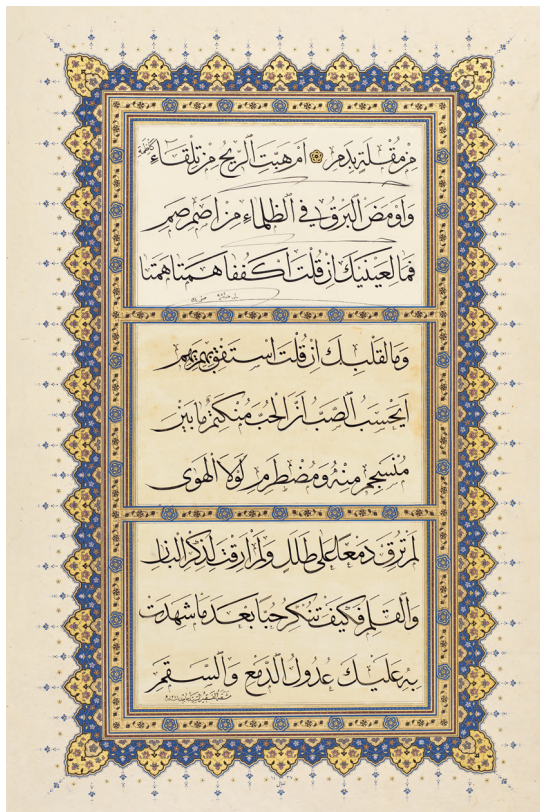 مِنْ مُقْلَةٍ بِدَمٍ أَمْ هَبَّتِ الرِّيحُ مِنْ تِلْقَاءِ كَاظِمَةٍ
وَأَوْمَضَ الْبَرْقُ فِي الظَّلْمَاءِ مِنْ إِضَمِ
فَمَا لِعَيْنَيْكَ إِنْ قُلْتَ اكْفُفَا هَمَتَا هَمَتَا
وَمَا لِقَلْبِكَ إِنْ قُلْتَ اسْتَفِقْ يَهِمِ
أَيَحْسَبُ الصَّبُّ أَنَّ الْحُبَّ مُنْكَتِمٌ مَا بَيْنَ
مُنْسَجِمٍ مِنْهُ وَمُضْطَرِمِ لَوْلَا الْهَوَى
لَمْ تُرِقْ دَمْعًا عَلَى طَلَلٍ وَلَا أَرِقْتَ لِذِكْرِ الْبَانِ
وَالْعَلَمِ فَكَيْفَ تُنْكِرُ حُبًّا بَعْدَ مَا شَهِدَتْ
بِهِ عَلَيْكَ عُدُولُ الدَّمْعِ وَالسَّقَمِ